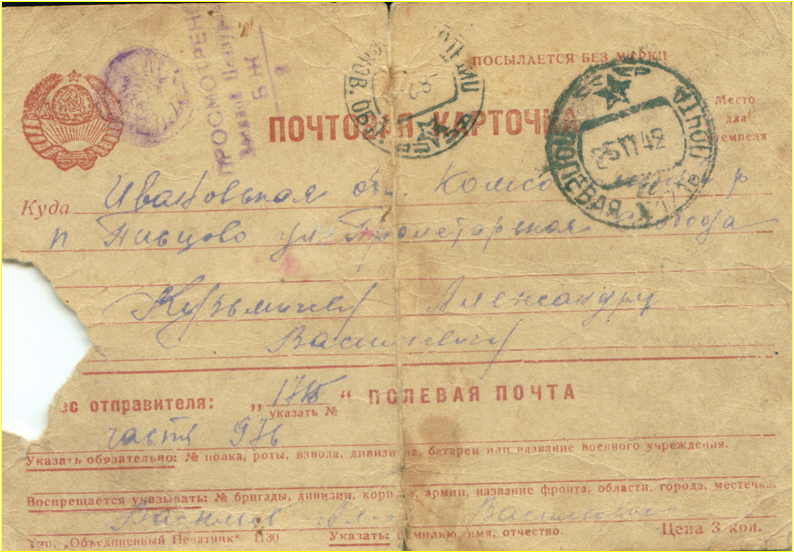 ПРОСМОТРЕНО
Военной Цензурой
БЖ
ПОСЫЛАЕТСЯ БЕЗ МАРКИ
ПОЧТОВАЯ КАРТОЧКА
Место
для
штемпеля
СССР
ПОЛЕВАЯ ПОЧТА
42
Куда Ивановская обл. Комсо р
п Пивцово ул. Пролетарская слобода
Кузьмичеву Александру
Васильевичу
ес отправителя: „ " ПОЛЕВАЯ ПОЧТА
указать №
часть 976
Указать обязательно: № полка, роты, взвода, дивизиона, батареи или название военного учреждения.
Воспрещается указывать: № бригады, дивизии, корпуса, армии, название фронта, области, города, местечка.
Васильев
Тип. „Объединенный Печатник" 1130 Указать: фамилию, имя, отчество. Цена 3 коп.